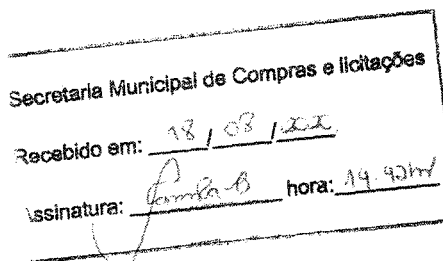 Secretaria Municipal de Compras e licitações
Recebido em: 18 / 08 /
Assinatura: hora: